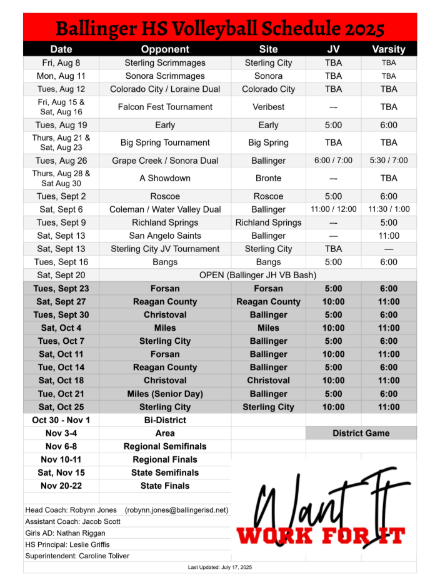 Ballinger HS Volleyball Schedule 2025
Date Opponent Site JV Varsity
Fri, Aug 8 Sterling Scrimmages Sterling City TBA TBA
Mon, Aug 11 Sonora Scrimmages Sonora TBA TBA
Tues, Aug 12 Colorado City / Loraine Dual Colorado City TBA TBA
Fri, Aug 15 & Sat, Aug 16 Falcon Fest Tournament Veribest --- TBA
Tues, Aug 19 Early Early 5:00 6:00
Thurs, Aug 21 & Sat, Aug 23 Big Spring Tournament Big Spring TBA TBA
Tues, Aug 26 Grape Creek / Sonora Dual Ballinger 6:00 / 7:00 5:30 / 7:00
Thurs, Aug 28 & Sat Aug 30 A Showdown Bronte --- TBA
Tues, Sept 2 Roscoe Roscoe 5:00 6:00
Sat, Sept 6 Coleman / Water Valley Dual Ballinger 11:00 / 12:00 11:30 / 1:00
Tues, Sept 9 Richland Springs Richland Springs --- 5:00
Sat, Sept 13 San Angelo Saints Ballinger --- 11:00
Sat, Sept 13 Sterling City JV Tournament Sterling City TBA ---
Tues, Sept 16 Bangs Bangs 5:00 6:00
Sat, Sept 20 OPEN (Ballinger JH VB Bash)
Tues, Sept 23 Forsan Forsan 5:00 6:00
Sat, Sept 27 Reagan County Reagan County 10:00 11:00
Tues, Sept 30 Christoval Ballinger 5:00 6:00
Sat, Oct 4 Miles Miles 10:00 11:00
Tues, Oct 7 Sterling City Ballinger 5:00 6:00
Sat, Oct 11 Forsan Ballinger 10:00 11:00
Tue, Oct 14 Reagan County Ballinger 5:00 6:00
Sat, Oct 18 Christoval Christoval 10:00 11:00
Tue, Oct 21 Miles (Senior Day) Ballinger 5:00 6:00
Sat, Oct 25 Sterling City Sterling City 10:00 11:00
Oct 30 - Nov 1 Bi-District
Nov 3-4 Area District Game
Nov 6-8 Regional Semifinals
Nov 10-11 Regional Finals
Sat, Nov 15 State Semifinals
Nov 20-22 State Finals
Head Coach: Robynn Jones (robynn.jones@ballingerisd.net)
Assistant Coach: Jacob Scott
Girls AD: Nathan Riggan
HS Principal: Leslie Griffis
Superintendent: Caroline Toliver
Want It
WORK FOR IT
Last Updated: July 17, 2025